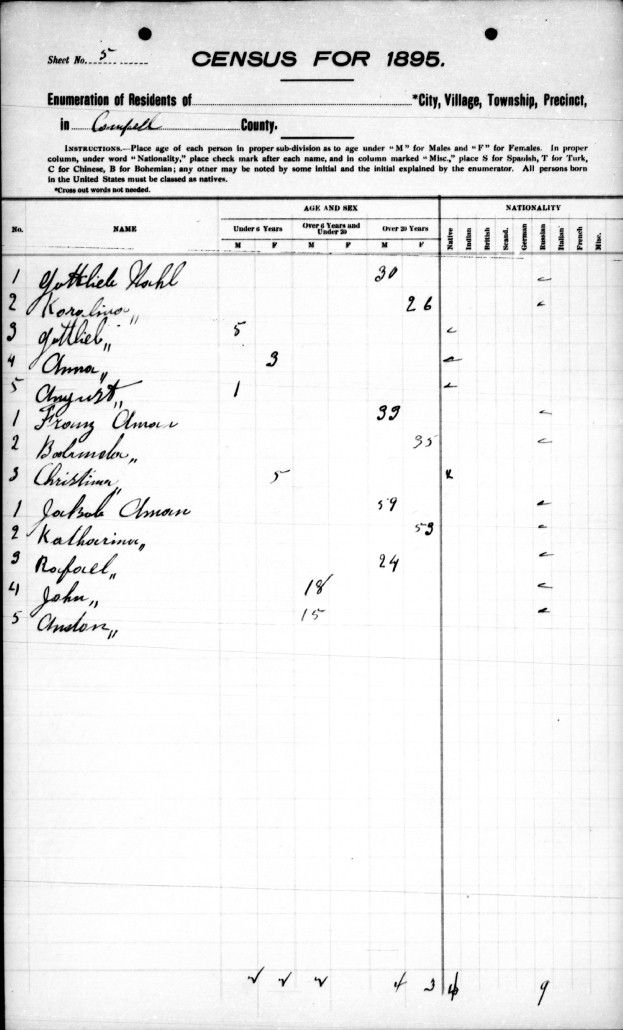 Sheet No. 5
CENSUS FOR 1895.
Enumeration of Residents of *City, Village, Township, Precinct,
in Campbell County.
INSTRUCTIONS.—Place age of each person in proper sub-division as to age under "M" for Males and "F" for Females. In proper
column, under word "Nationality," place check mark after each name, and in column marked "Misc.," place S for Spanish, T for Turk,
C for Chinese, B for Bohemian; any other may be noted by some initial and the initial explained by the enumerator. All persons born
in the United States must be classed as natives.
*Cross out words not needed.
AGE AND SEX NATIONALITY
No. NAME Under 6 Years Over 6 Years and Under 20 Over 20 Years Native Indian British Scand. German Russian Italian French Misc.
M F M F M F
1 Gottlieb 30
2 Korolina " 26
3 Gottlieb " 5
4 Anna " 3
5 August " 1
1 Franz Aman 39
2 " 35
3 Christina " 5 x
1 Jakob Aman 59
2 Katharina " 53
3 Rafael " 24
4 John " 18
5 Anston " 15
4 3 4 9